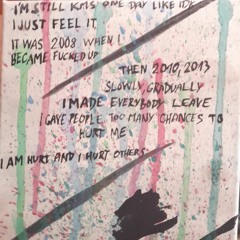 I'M STILL KMS ONE DAY LIKE IDK
I JUST FEEL IT
IT WAS 2008 WHEN I
BECAME FUCKED UP
THEN 2010, 2013
SLOWLY, GRADUALLY
I MADE EVERYBODY LEAVE
I GAVE PEOPLE TOO MANY CHANCES TO
HURT ME
I AM HURT AND I HURT OTHERS